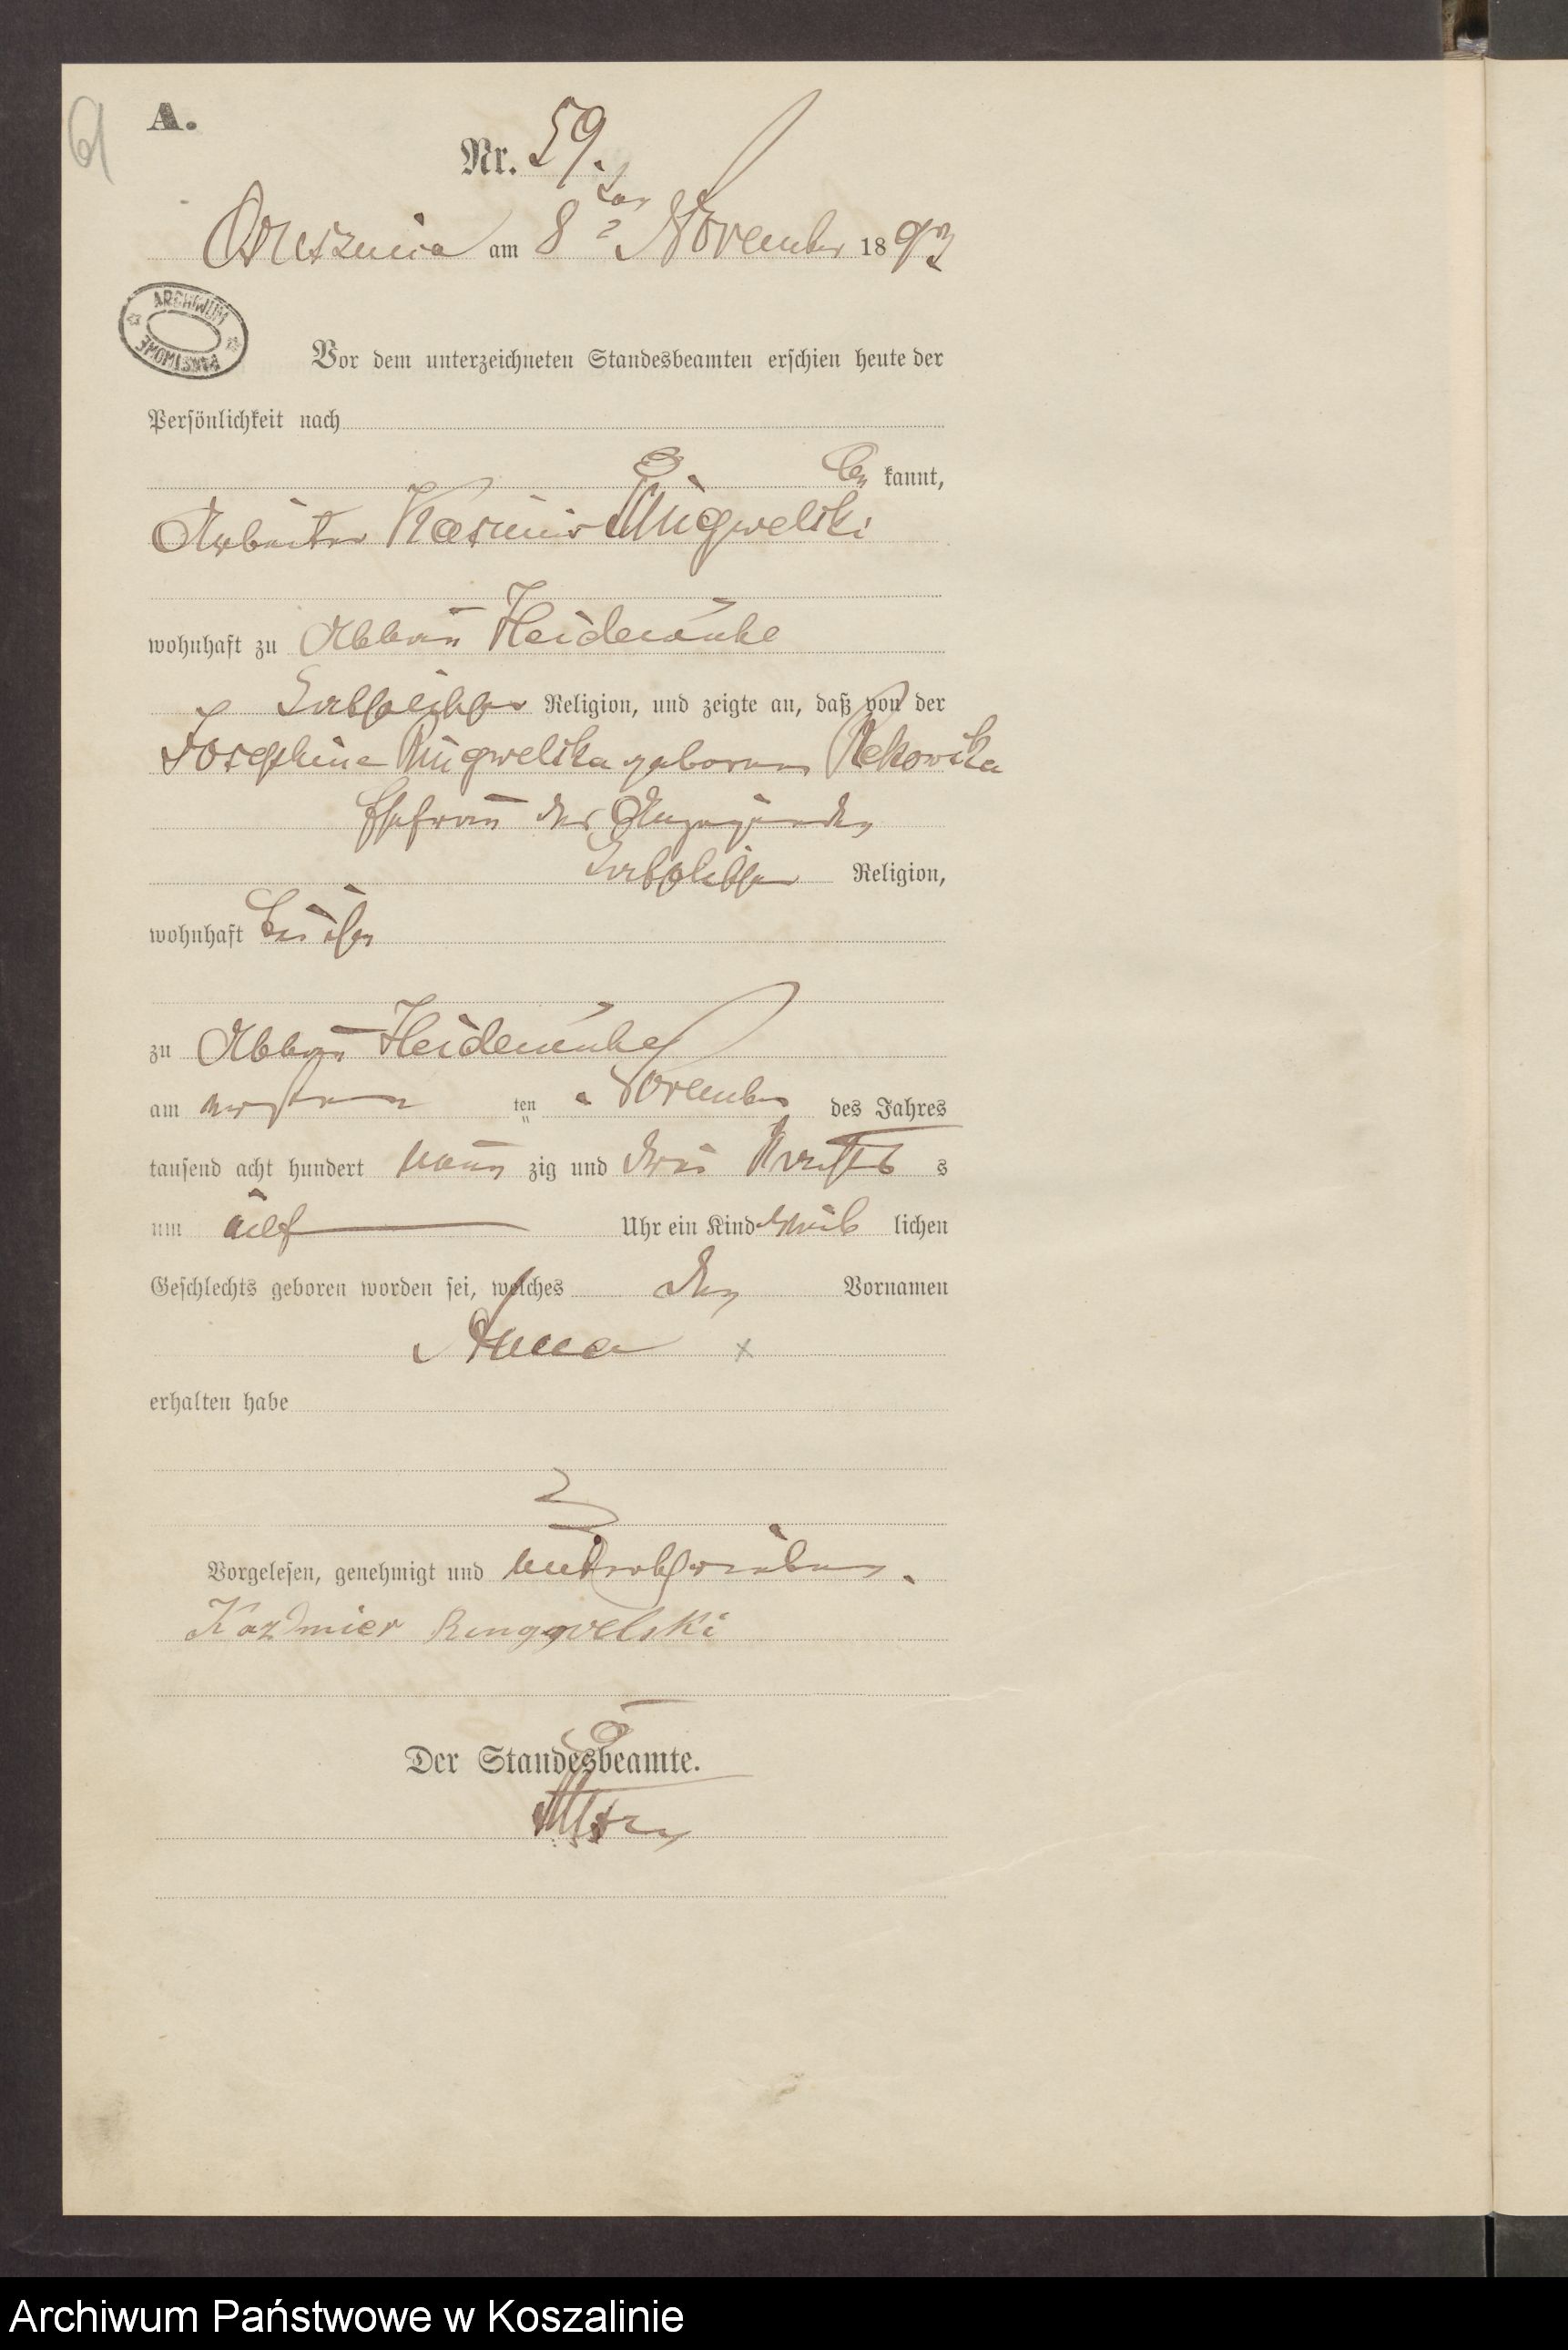 A.
Nr. 59.
Ossusznica am 8 ten November 1893
ARCHIWUM PAŃSTWOWE
Vor dem unterzeichneten Standesbeamten erschien heute der
Persönlichkeit nach
be kannt,
Arbeiter Kasimir Rugwelski
wohnhaft zu Abbau
katholischer Religion, und zeigte an, daß von der
Josephine Rugwelska geborene Rekowska
Ehefrau des Anzeigenden
katholischer Religion,
wohnhaft bei ihm
zu Abbau
am ersten ten November des Jahres
tausend acht hundert neun zig und drei Nachts
um elf Uhr ein Kind weib lichen
Geschlechts geboren worden sei, welches den Vornamen
Anna
erhalten habe
Vorgelesen, genehmigt und unterschrieben.
Kazimier Rungwelski
Der Standesbeamte.
Archiwum Państwowe w Koszalinie